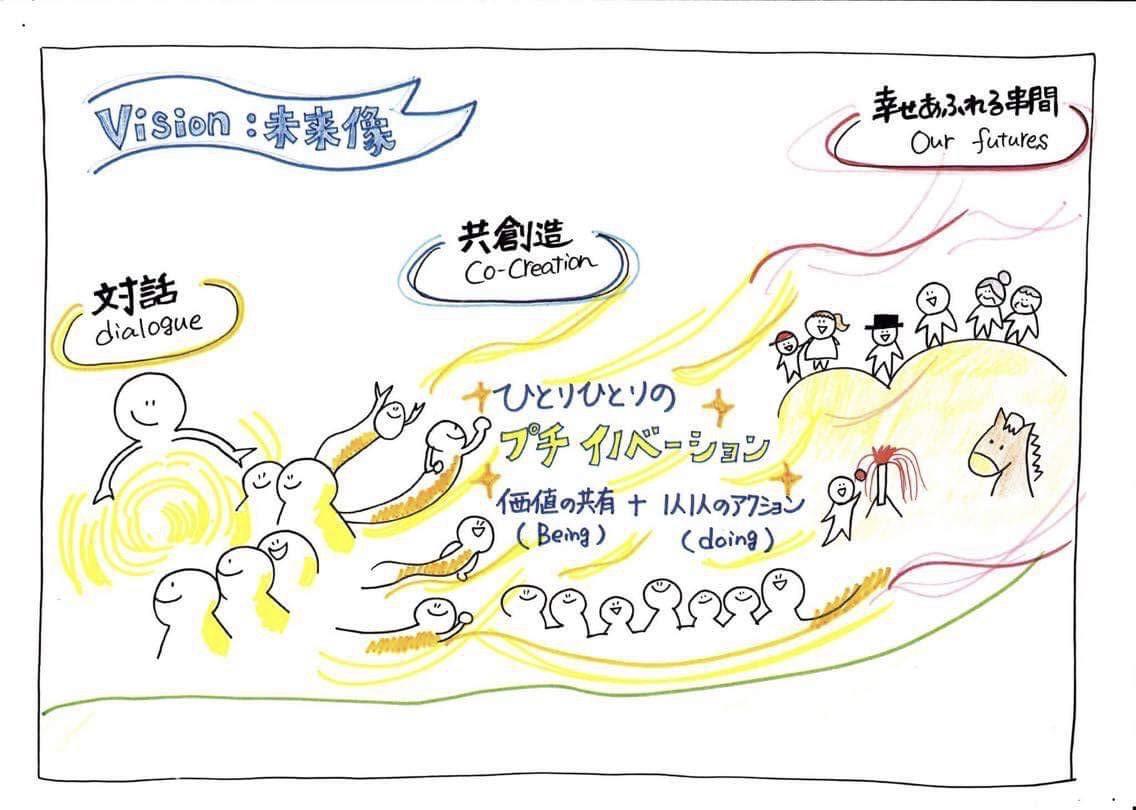 Vision:未来像
幸せあふれる串間
Our futures
共創造
Co-Creation
対話
dialogue
ひとりひとりの
プチ イノベーション
価値の共有 + 1人1人のアクション
(Being) (doing)